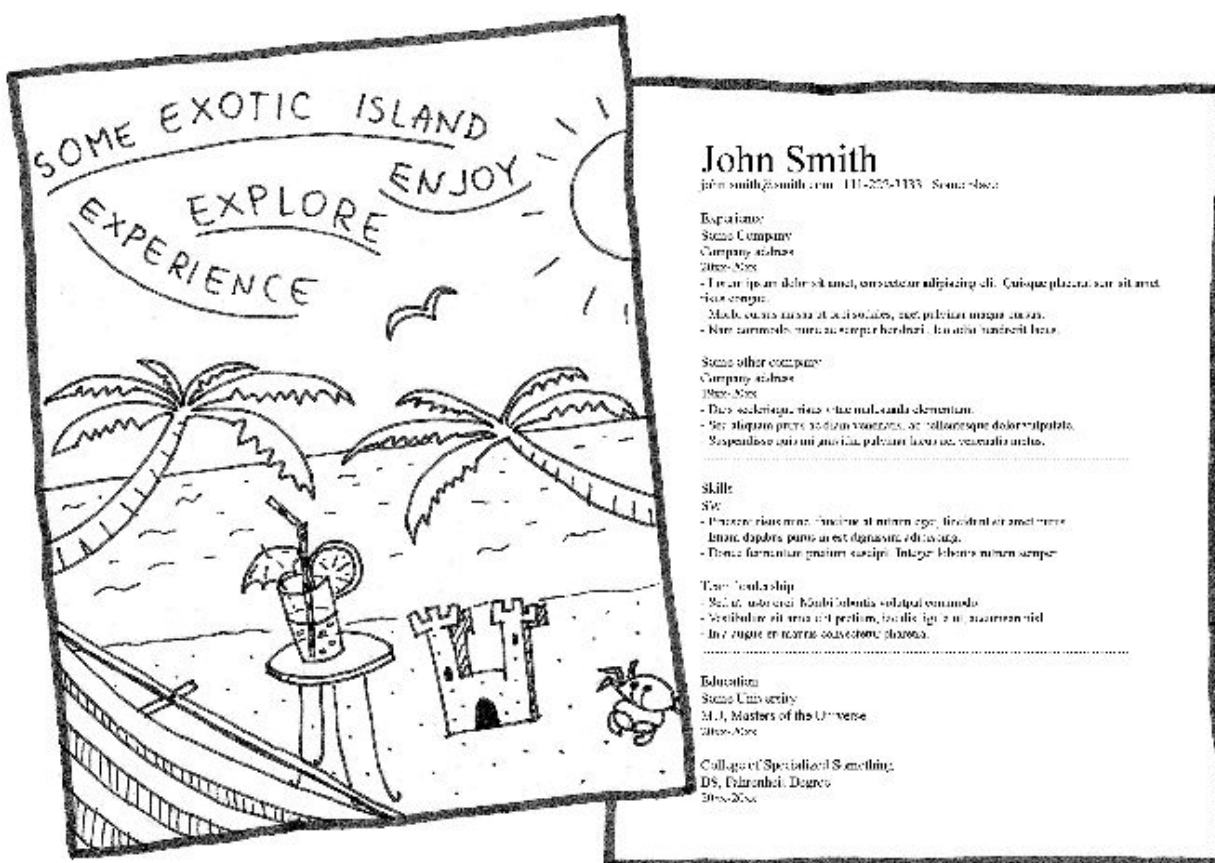 SOME EXOTIC ISLAND
ENJOY
EXPLORE
EXPERIENCE
John Smith
Some place
Experience
Some Company
Company address
20xx-20xx
- Lorem ipsum dolor sit amet, consectetur adipiscing eli. Quisque placerat sem sit amet
risus congue.
- Morbi cursus massa ut orci sodales, eget pulvinar magna cursus.
- Nam commodo nunc ac semper hendrerit. leo odio hendrerit lacus.
Some other company
Company address
19xx-20xx
- Duis scelerisque risus vitae malesuada elementum.
- Sed aliquam purus ac diam venenatis, ac pellentesque dolor vulputate.
- Suspendisse quis mi gravida, pulvinar lacus nec, venenatis metus.
Skills
SW
- Praesent risus nunc, faucibus at rutrum eget, tincidunt sit amet
- Etiam dapibus purus in est dignissim adipiscing.
- Donec fermentum pretium suscipit. Integer lobortis rutrum semper
Team leadership
- Sed justo orci. Morbi lobortis volutpat commodo
- Vestibulum sit amet elit pretium, iaculis ligula ut, accumsan nisl
- In augue et mattis consectetur pharetra.
Education
Some University
Masters of the Universe
20xx-20xx
College of Specialized Something
Fahrenheit Degree
20xx-20xx